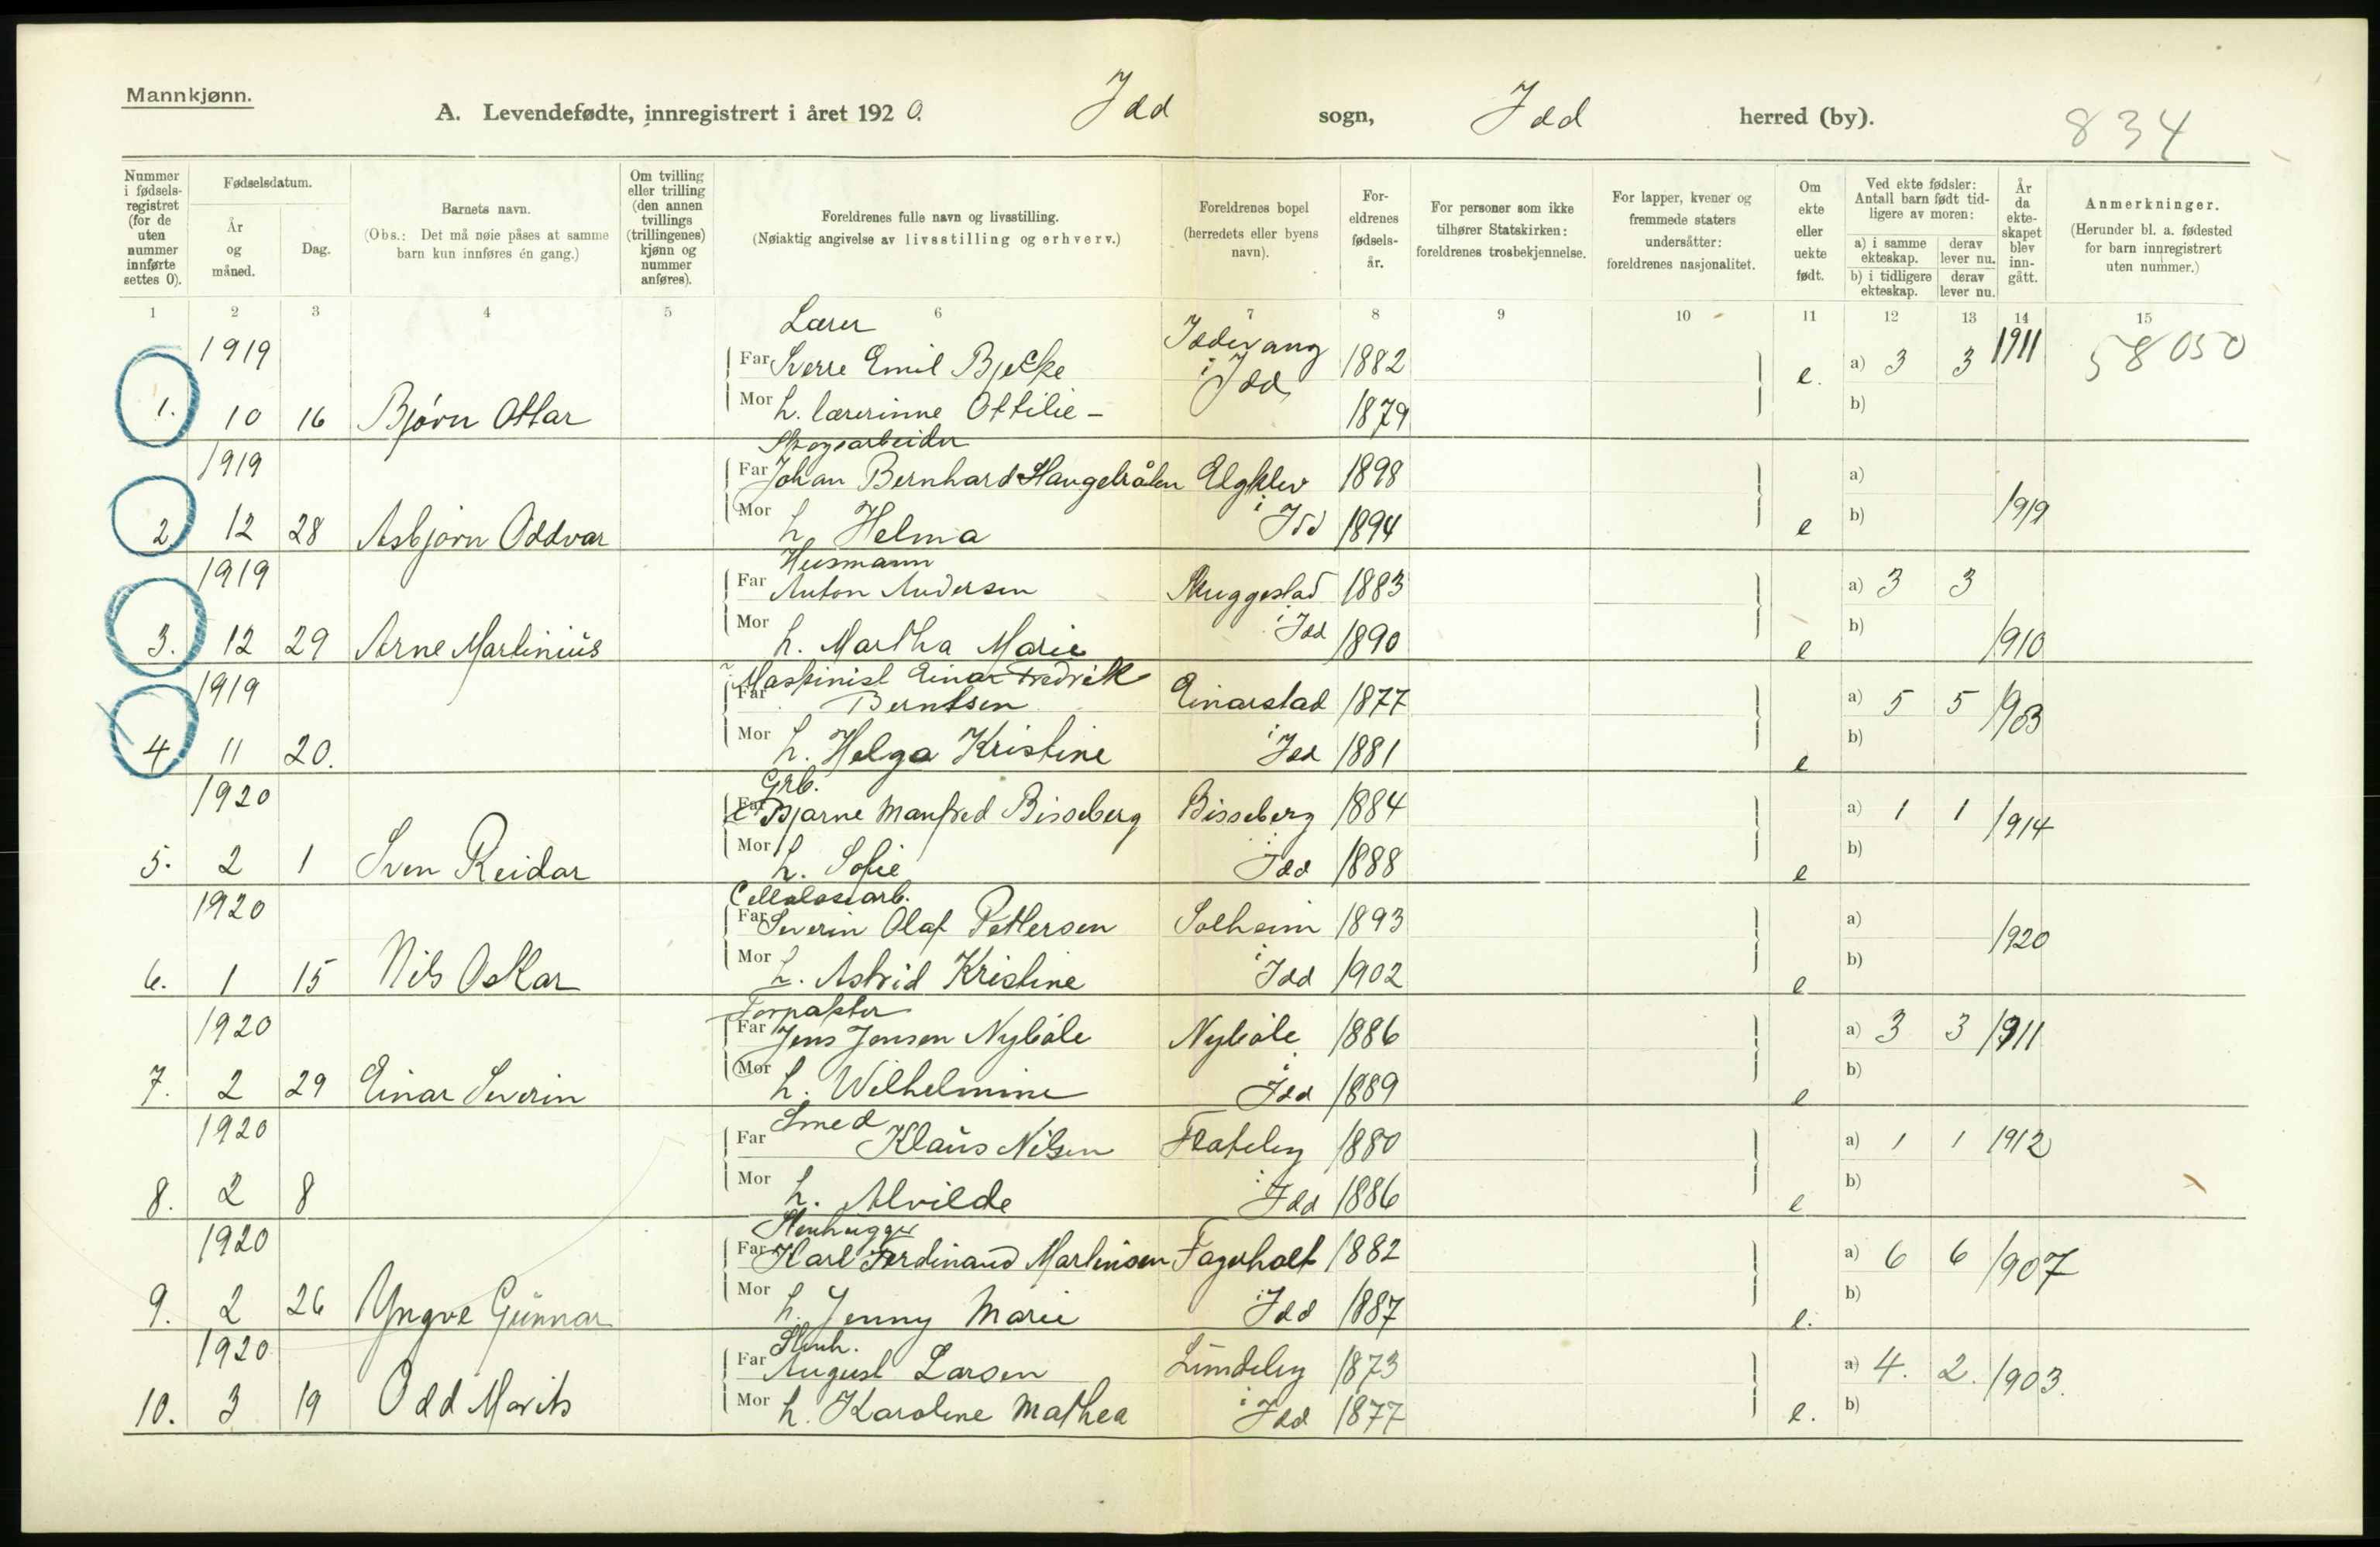 Mannkjønn.
A. Levendefødte, innregistrert i året 1920. Idd sogn, Idd herred (by). 834
Nummer i fødsels-registret (for de uten nummer innførte settes 0).
Fødselsdatum.
År og måned.
Dag.
Barnets navn.
(Obs.: Det må nøie påses at samme barn kun innføres én gang.)
Om tvilling eller trilling (den annen tvillings (trillingenes) kjønn og nummer anføres).
Foreldrenes fulle navn og livsstilling.
(Nøiaktig angivelse av livsstilling og erhverv.)
Foreldrenes bopel (herredets eller byens navn).
For-eldrenes fødsels-år.
For personer som ikke tilhører Statskirken: foreldrenes trosbekjennelse.
For lapper, kvener og fremmede staters undersåtter: foreldrenes nasjonalitet.
Om ekte eller uekte født.
Ved ekte fødsler: Antall barn født tid-ligere av moren:
a) i samme ekteskap. derav lever nu.
b) i tidligere ekteskap. derav lever nu.
År da ekte-skapet blev inn-gått.
Anmerkninger.
(Herunder bl. a. fødested for barn innregistrert uten nummer.)
1 2 3 4 5 6 7 8 9 10 11 12 13 14 15
Lærer
1919 Far Sverre Emil Bjecke Iddevang 1882 a) 3 3 1911 58050
1. 10 16 Bjørn Ottar Mor h. lærerinne Ottilie - i Idd 1879 e. b)
Skogsarbeider
1919 Far Johan Bernhard Haugelråsen Elgklev 1898 a)
2 12 28 Asbjørn Oddvar Mor h. Helma i Idd 1894 e b) 1919
Husmann
1919 Far Anton Andersen Skuggestad 1883 a) 3 3
3. 12 29 Arne Martinius Mor h. Martha Marie i Idd 1890 e b) 1910
Maskinist Einar Fredrik
1919 Far Berntsen Einarstad 1877 a) 5 5 1903
4 11 20. Mor h. Helga Kristine i Idd 1881 e b)
Grb.
1920 Far Bjarne Manfred Bisseberg Bisseberg 1884 a) 1 1 1914
5. 2 1 Sven Reidar Mor h. Sofie i Idd 1888 e b)
Cellulosearb.
1920 Far Severin Olaf Pettersen Solheim 1893 a) 1920
6. 1 15 Nils Oskar Mor h. Astrid Kristine i Idd 1902 e b)
Forpakter
1920 Far Jens Jensen Nybøle Nybøle 1886 a) 3 3 1911
7. 2 29 Einar Severin Mor h. Wilhelmine i Idd 1889 e b)
Smed
1920 Far Klaus Nilsen Flateby 1880 a) 1 1 1912
8. 2 8 Mor h. Alvilde i Idd 1886 e b)
Stenhugger
1920 Far Karl Ferdinand Martinsen Fagerholt 1882 a) 6 6 1907
9. 2 26 Yngve Gunnar Mor h. Jenny Marie i Idd 1887 e. b)
Stenh.
1920 Far August Larsen Lundeby 1873 a) 4. 2. 1903.
10. 3 19 Odd Marits Mor h. Karoline Mathea i Idd 1877 e. b)